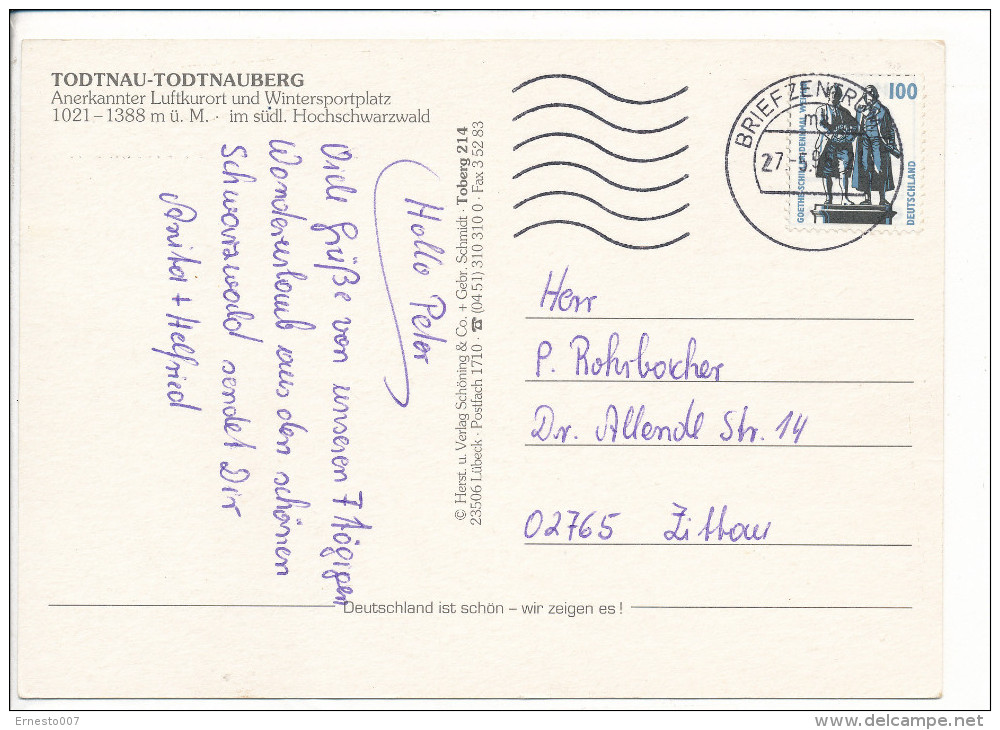 TODTNAU-TODTNAUBERG
Anerkannter Luftkurort und Wintersportplatz
1021–1388 m ü. M. · im südl. Hochschwarzwald
Hallo Peter
Viele Grüße von unseren 7 tägigen
Wanderurlaub aus den schönen
Schwarzwald sendet Dir
Anita + Helfried
© Herst. u. Verlag Schöning & Co. + Gebr. Schmidt · Toberg 214
23506 Lübeck · Postfach 1710 · ☎ (04 51) 310 310 0 · Fax 3 52 83
BRIEFZENTRUM
27.-5.9
100
GOETHE-SCHILLER-DENKMAL
DEUTSCHLAND
Herr
P. Rohrbacher
Dr. Allende Str. 14
02765 Zittau
Deutschland ist schön – wir zeigen es!
Ernesto007
www.delcampe.net